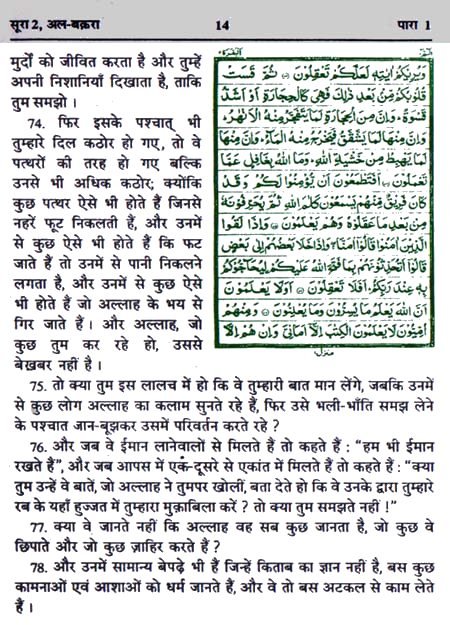 सूरा 2, अल-बक़रा 14 पारा 1
मुर्दों को जीवित करता है और तुम्हें
अपनी निशानियाँ दिखाता है, ताकि
तुम समझो ।
74. फिर इसके पश्चात् भी
तुम्हारे दिल कठोर हो गए, तो वे
पत्थरों की तरह हो गए बल्कि
उनसे भी अधिक कठोर; क्योंकि
कुछ पत्थर ऐसे भी होते हैं जिनसे
नहरें फूट निकलती हैं, और उनमें
से कुछ ऐसे भी होते हैं कि फट
जाते हैं तो उनमें से पानी निकलने
लगता है, और उनमें से कुछ ऐसे
भी होते हैं जो अल्लाह के भय से
गिर जाते हैं । और अल्लाह, जो
कुछ तुम कर रहे हो, उससे
बेख़बर नहीं है ।
وَيُرِيكُمْ اٰيٰتِهٖ لَعَلَّكُمْ تَعْقِلُوْنَ ثُمَّ قَسَتْ
قُلُوْبُكُمْ مِّنْ بَعْدِ ذٰلِكَ فَهِيَ كَالْحِجَارَةِ اَوْ اَشَدُّ
قَسْوَةً وَاِنَّ مِنَ الْحِجَارَةِ لَمَا يَتَفَجَّرُ مِنْهُ الْاَنْهٰرُ
وَاِنَّ مِنْهَا لَمَا يَشَّقَّقُ فَيَخْرُجُ مِنْهُ الْمَآءُ وَاِنَّ مِنْهَا
لَمَا يَهْبِطُ مِنْ خَشْيَةِ اللهِ وَمَا اللهُ بِغَافِلٍ عَمَّا
تَعْمَلُوْنَ اَفَتَطْمَعُوْنَ اَنْ يُّؤْمِنُوْا لَكُمْ وَقَدْ
كَانَ فَرِيْقٌ مِّنْهُمْ يَسْمَعُوْنَ كَلٰمَ اللهِ ثُمَّ يُحَرِّفُوْنَهٗ
مِنْ بَعْدِ مَا عَقَلُوْهُ وَهُمْ يَعْلَمُوْنَ وَاِذَا لَقُوا
الَّذِيْنَ اٰمَنُوْا قَالُوْٓا اٰمَنَّا وَاِذَا خَلَا بَعْضُهُمْ اِلٰى بَعْضٍ
قَالُوْٓا اَتُحَدِّثُوْنَهُمْ بِمَا فَتَحَ اللهُ عَلَيْكُمْ لِيُحَآجُّوْكُمْ
بِهٖ عِنْدَ رَبِّكُمْ اَفَلَا تَعْقِلُوْنَ اَوَلَا يَعْلَمُوْنَ
اَنَّ اللهَ يَعْلَمُ مَا يُسِرُّوْنَ وَمَا يُعْلِنُوْنَ وَمِنْهُمْ
اُمِّيُّوْنَ لَا يَعْلَمُوْنَ الْكِتٰبَ اِلَّآ اَمَانِيَّ وَاِنْ هُمْ اِلَّا
منزل
75. तो क्या तुम इस लालच में हो कि वे तुम्हारी बात मान लेंगे, जबकि उनमें
से कुछ लोग अल्लाह का कलाम सुनते रहे हैं, फिर उसे भली-भाँति समझ लेने
के पश्चात जान-बूझकर उसमें परिवर्तन करते रहे ?
76. और जब वे ईमान लानेवालों से मिलते हैं तो कहते हैं : “हम भी ईमान
रखते हैं”, और जब आपस में एक-दूसरे से एकांत में मिलते हैं तो कहते हैं : “क्या
तुम उन्हें वे बातें, जो अल्लाह ने तुमपर खोलीं, बता देते हो कि वे उनके द्वारा तुम्हारे
रब के यहाँ हुज्जत में तुम्हारा मुक़ाबिला करें ? तो क्या तुम समझते नहीं !”
77. क्या वे जानते नहीं कि अल्लाह वह सब कुछ जानता है, जो कुछ वे
छिपाते और जो कुछ ज़ाहिर करते हैं ?
78. और उनमें सामान्य बेपढ़े भी हैं जिन्हें किताब का ज्ञान नहीं है, बस कुछ
कामनाओं एवं आशाओं को धर्म जानते हैं, और वे तो बस अटकल से काम लेते
हैं ।